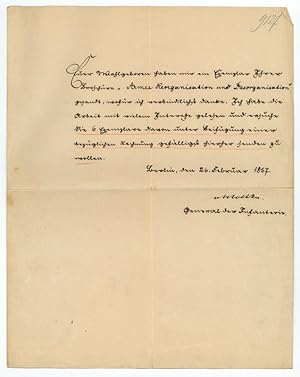 Euer Wohlgeboren haben mir ein Exemplar Ihrer
Broschüre „Armee Reorganisation und Desorganisation"
gesandt, wofür ich verbindlichst danke. Ich habe die
Arbeit mit vielem Interesse gelesen und ersuche
Sie 6 Exemplare davon unter Beifügung einer
bezüglichen Rechnung gefälligst hierher senden zu
wollen.
Berlin, den 26. Februar 1867.
v Moltke.
General der Infanterie.